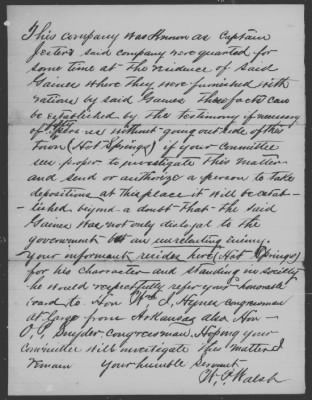 This company was known as Captain
Jesters said company were quarted for
some time at the residence of said
Gaines where they were furnished with
rations by said Gaines These facts can
be established by the testimony if necessary
of persons without going outside of this
town (Hot Springs) if your committee
see proper to investigate this matter
and send or authorize a person to take
depositions at this place it will be estab-
-lished beyond a doubt that the said
Gaines was not only disloyal to the
government but an unrelenting enimy.
Your informant resides here (Hot Springs)
for his character and standing in society
he would respectfully refer your honorable
board to Hon Wm J, Hynes congressman
at large from Arkansas also Hon
O, P, Snyder congressman, Hoping your
committee will investigate this matter I
remain Your humble servant
W, P, Walsh